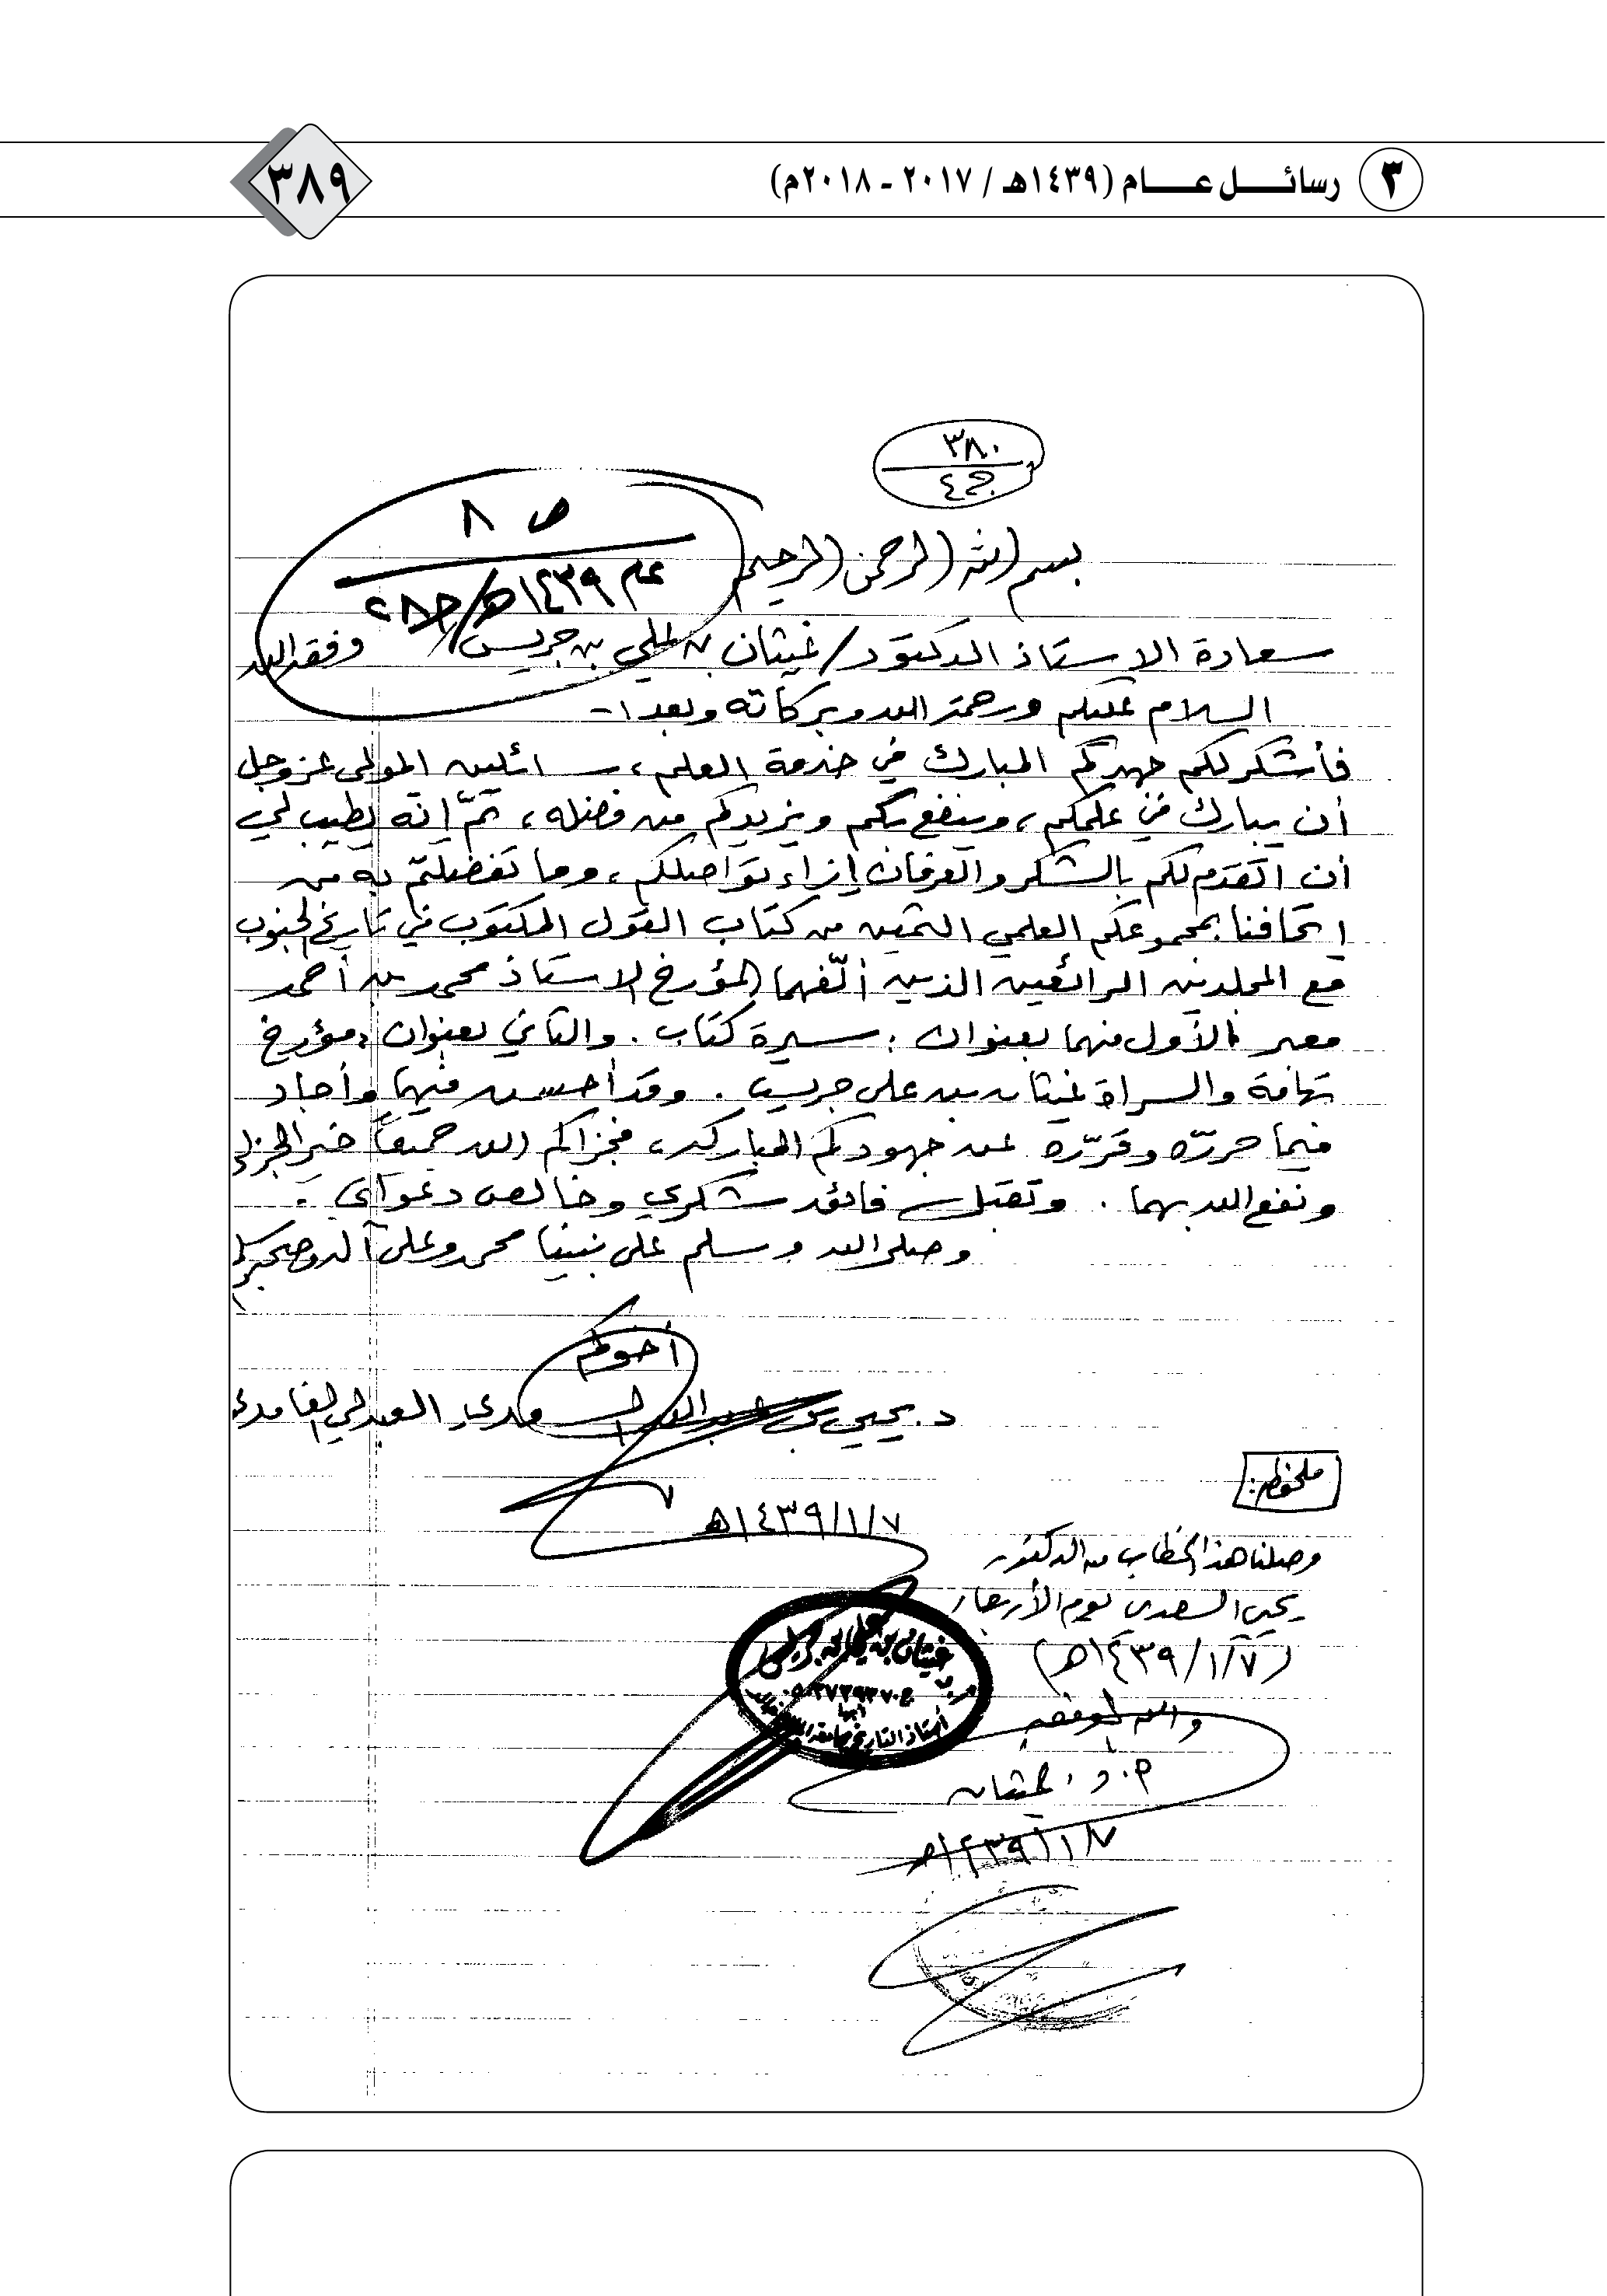 ٣ رسائل عام (١٤٣٩هـ / ٢٠١٧ - ٢٠١٨م)
٣٨٩
٣٨٠
ج٤
ص ٨
عام ١٤٣٩هـ/
بسم الله الرحمن الرحيم
سعادة الاستاذ الدكتور/ غيثان بن علي بن جريس وفقه الله
السلام عليكم ورحمة الله وبركاته وبعد :-
فأشكر لكم جهدكم المبارك في خدمة العلم، سائلين المولى عز وجل
أن يبارك في علمكم، وينفع بكم ويزيدكم من فضله، ثمّ إنّه يطيب لي
أن اتقدم لكم بالشكر والعرفان إزاء تواصلكم، وما تفضلتم به من
اتحافنا بمجموعكم العلمي الثمين من كتاب القول المكتوب في تاريخ الجنوب
مع المجلدين الرائعين الذين ألّفهما المؤرخ الاستاذ محمد بن أحمد
معبر فالأول منهما بعنوان : سيرة كتاب . والثاني بعنوان : مؤرخ
تهامة والسراة غيثان بن علي جريس . وقد أحسن فيهما وأجاد
فيما حرّره وقرّره عن جهودكم المباركه، فجزاكم الله جميعاً خير الجزاء
ونفع الله بهما . وتقبل فائق شكري وخالص دعواتي .
وصلى الله وسلم على نبينا محمد وعلى آله وصحبه
أخوكم
د. يحيى بن عبدالله السعدي العبدلي الغامدي
١٤٣٩/١/٧هـ
ملحوظة :
وصلنا هذا الخطاب من الدكتور
يحيى السعدي يوم الأربعاء
(١٤٣٩/١/٧هـ)
والله الموفق
أ. د. غيثان
١٤٣٩/١/٧هـ
غيثان بن علي بن جريس
أبها
أستاذ التاريخ بجامعة الملك خالد